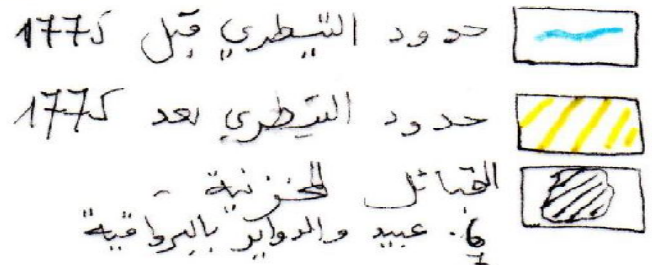 حدود التيطري قبل 1775
حدود التيطري بعد 1775
القبائل المخزنية -
6. عبيد والدواير بالبرواقية
7